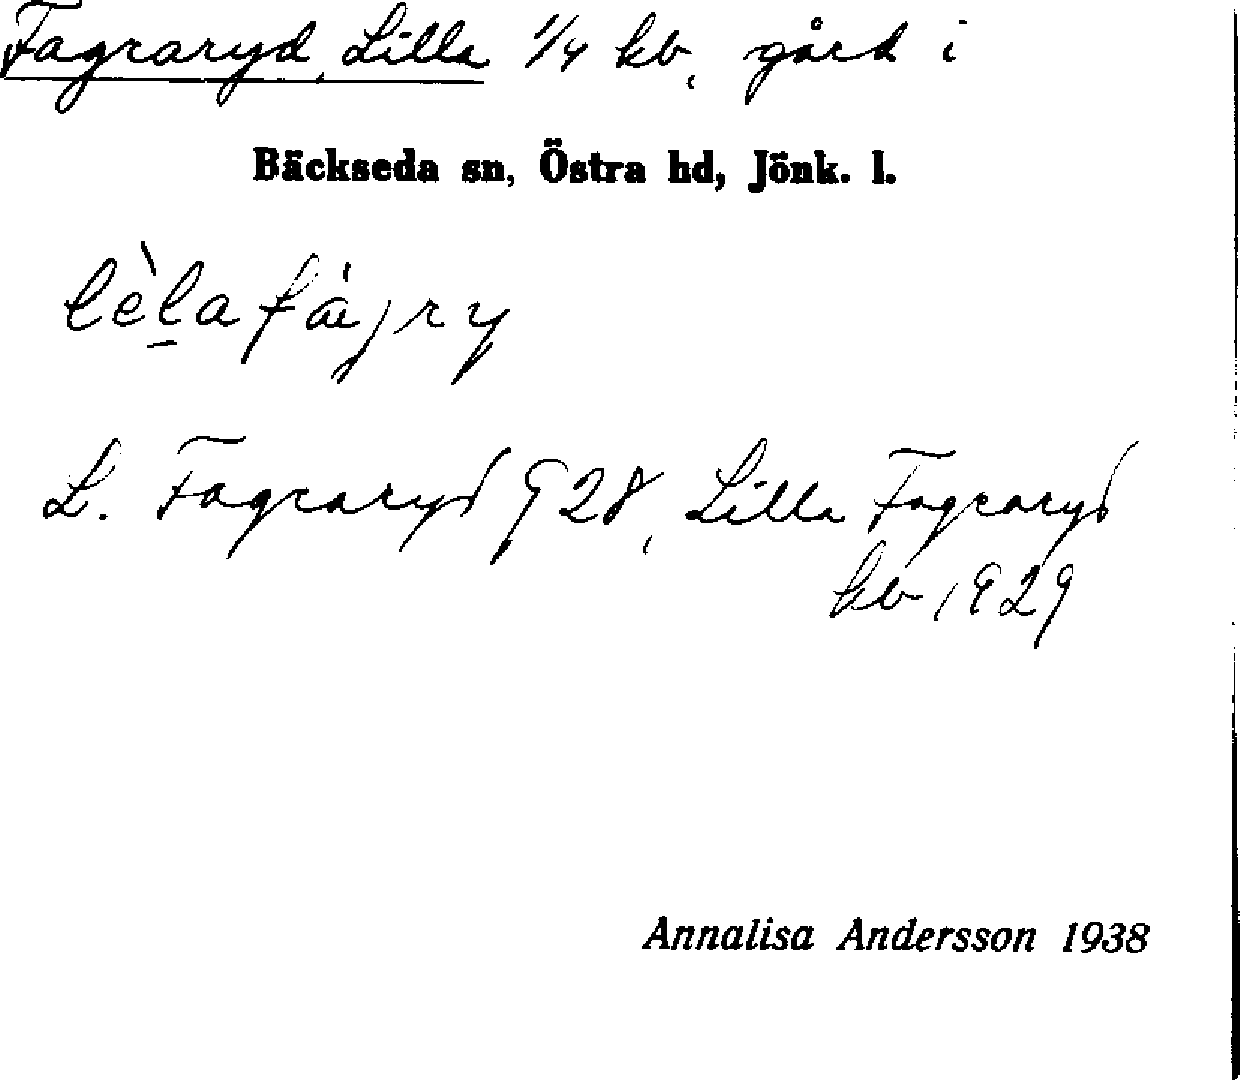 Fagraryd, Lilla 1/4 kb, gård i
Bäckseda sn, Östra hd, Jönk. l.
lèla fájry
L. Fagraryd 928, Lilla Fagraryd
kb 1929
Annalisa Andersson 1938